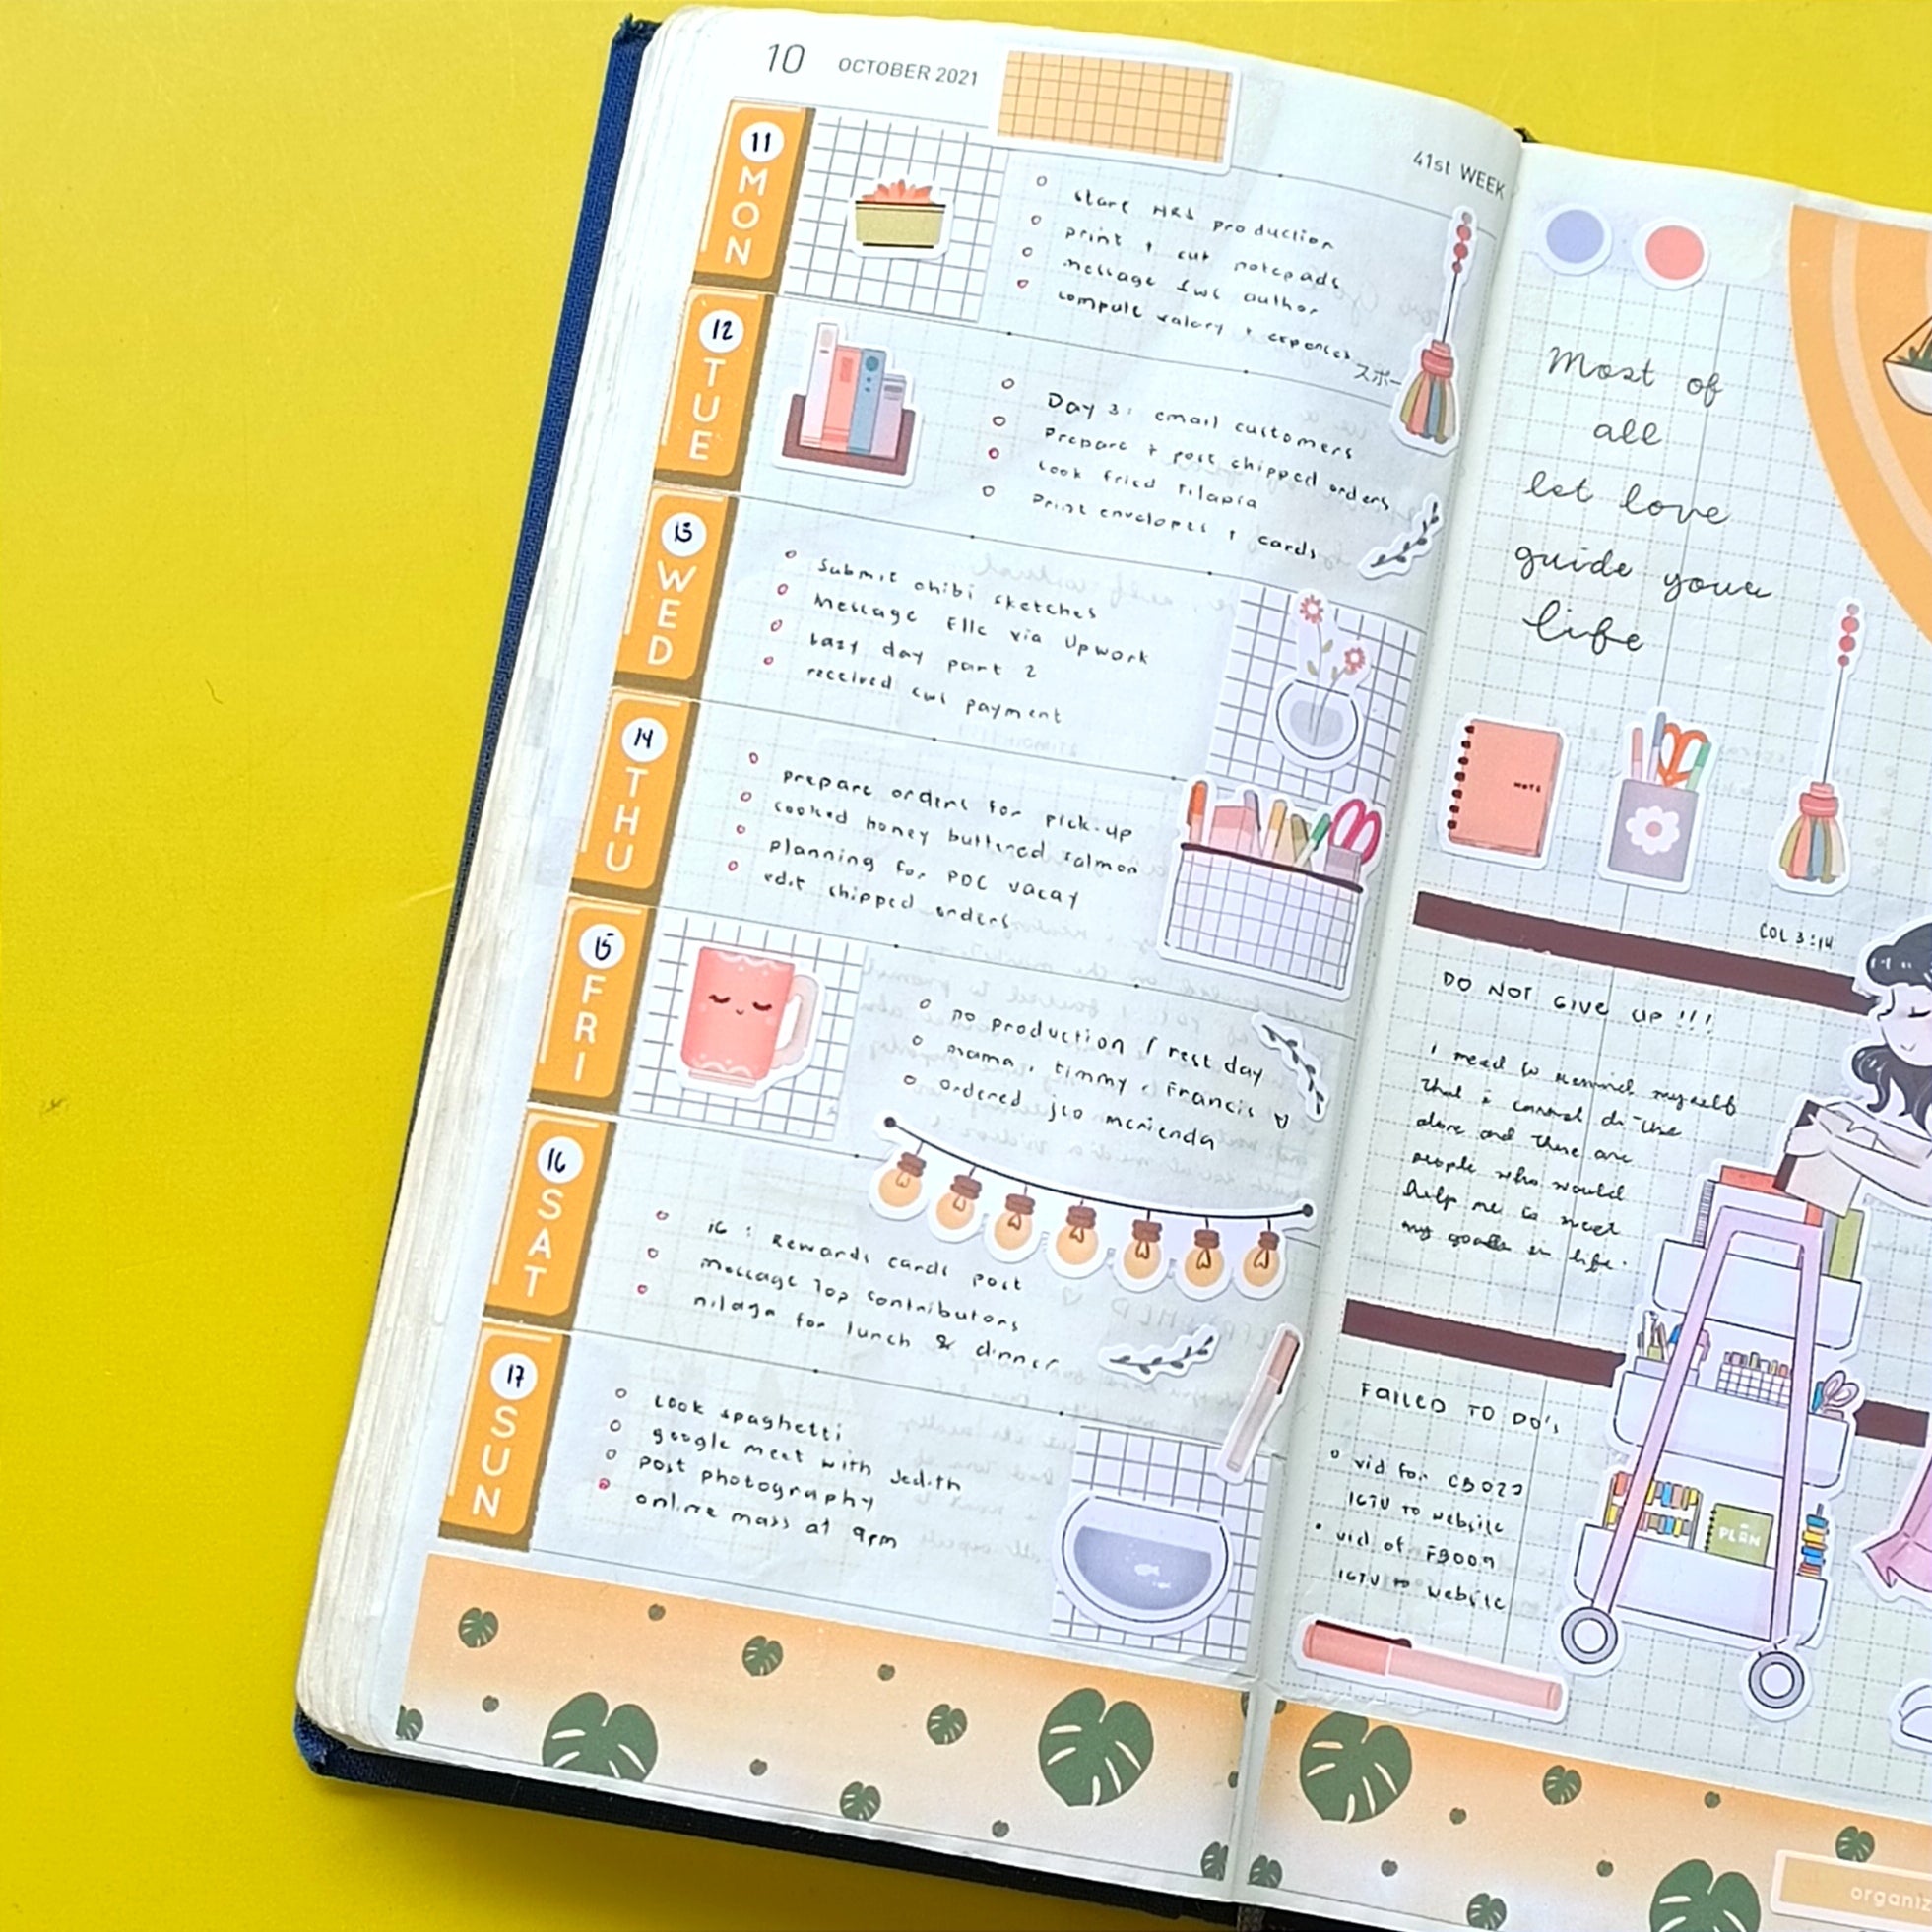 10 OCTOBER 2021
41st WEEK
11
MON
start HRS production
print + cut notepads
message author
compute salary + expenses
スポー
12
TUE
Day 3: email customers
Prepare + post chipped orders
cook fried tilapia
Print envelopes + cards
13
WED
Submit chibi sketches
Message Elle via Upwork
Lazy day part 2
received payment
14
THU
prepare orders for pick-up
cooked honey buttered salmon
planning for PDC vacay
edit chipped orders
15
FRI
no production / rest day
mama, timmy & Francis
ordered jco merienda
16
SAT
16 : Rewards cards post
message Top contributors
nilaga for lunch & dinner
17
SUN
cook spaghetti
google meet with Jedith
post photography
online mass at 9pm
Most of
all
let love
guide your
life
NOTE
COL 3:14
DO NOT GIVE UP!!!
I need to remind myself
that I cannot do this
alone and there are
people who would
help me to meet
my goals in life.
FAILED TO DO's
vid for CB022
IGTV TO website
vid of FB009
IGTV to website
PLAN
organiz